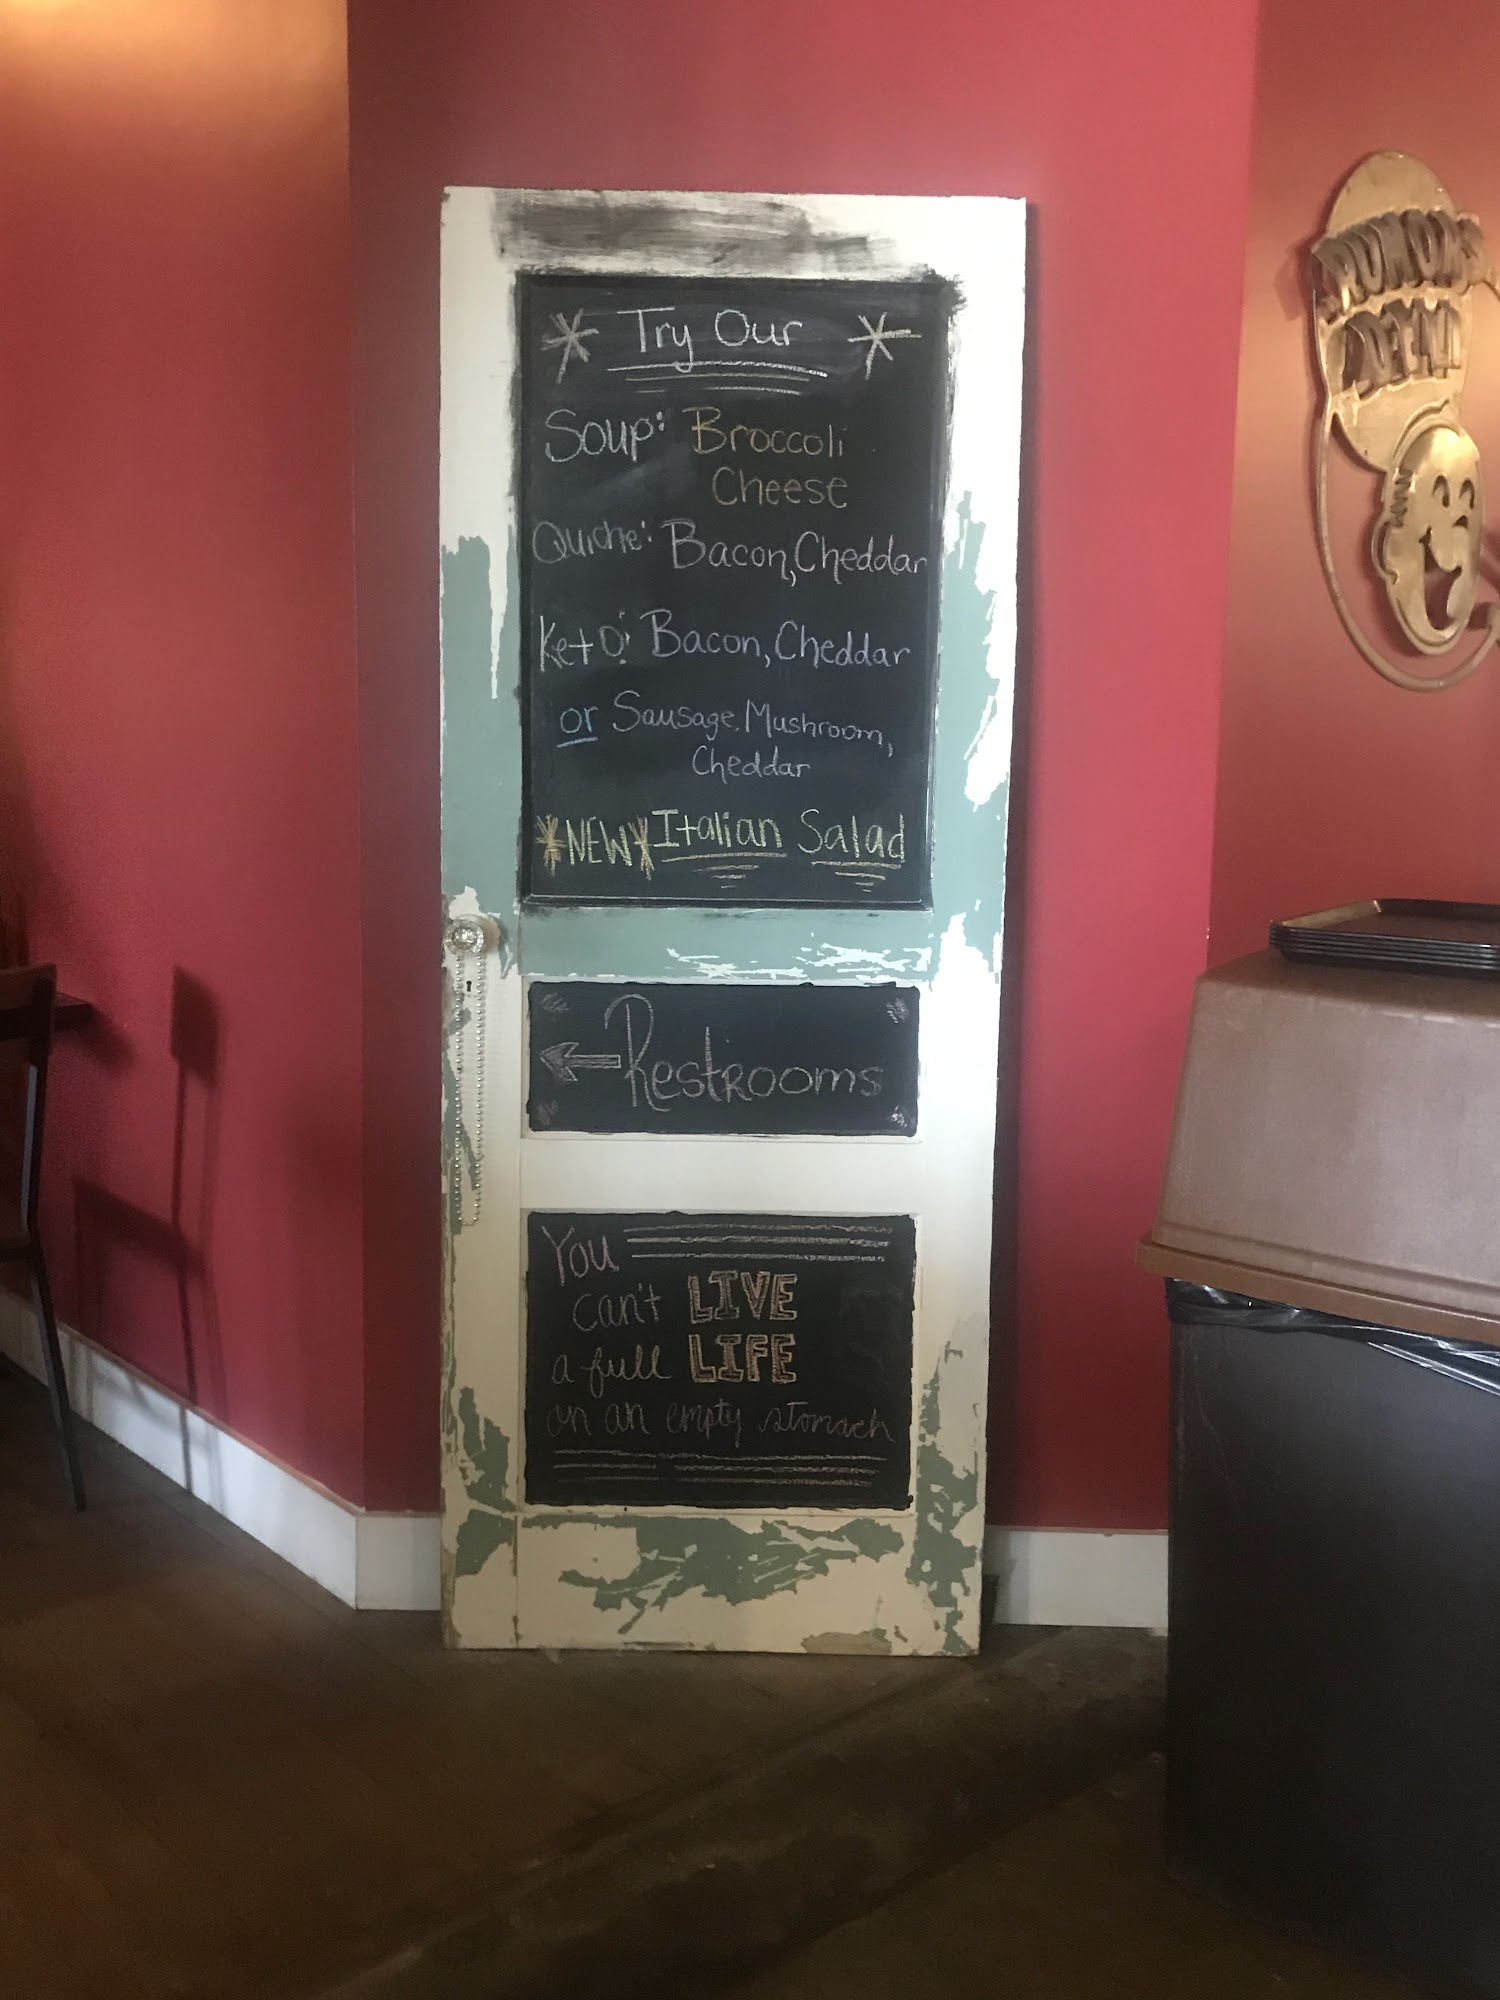 * Try Our *
Soup: Broccoli
Cheese
Quiche: Bacon, Cheddar
Keto: Bacon, Cheddar
or Sausage, Mushroom,
Cheddar
*NEW* Italian Salad
← Restrooms
You
can't LIVE
a full LIFE
on an empty stomach